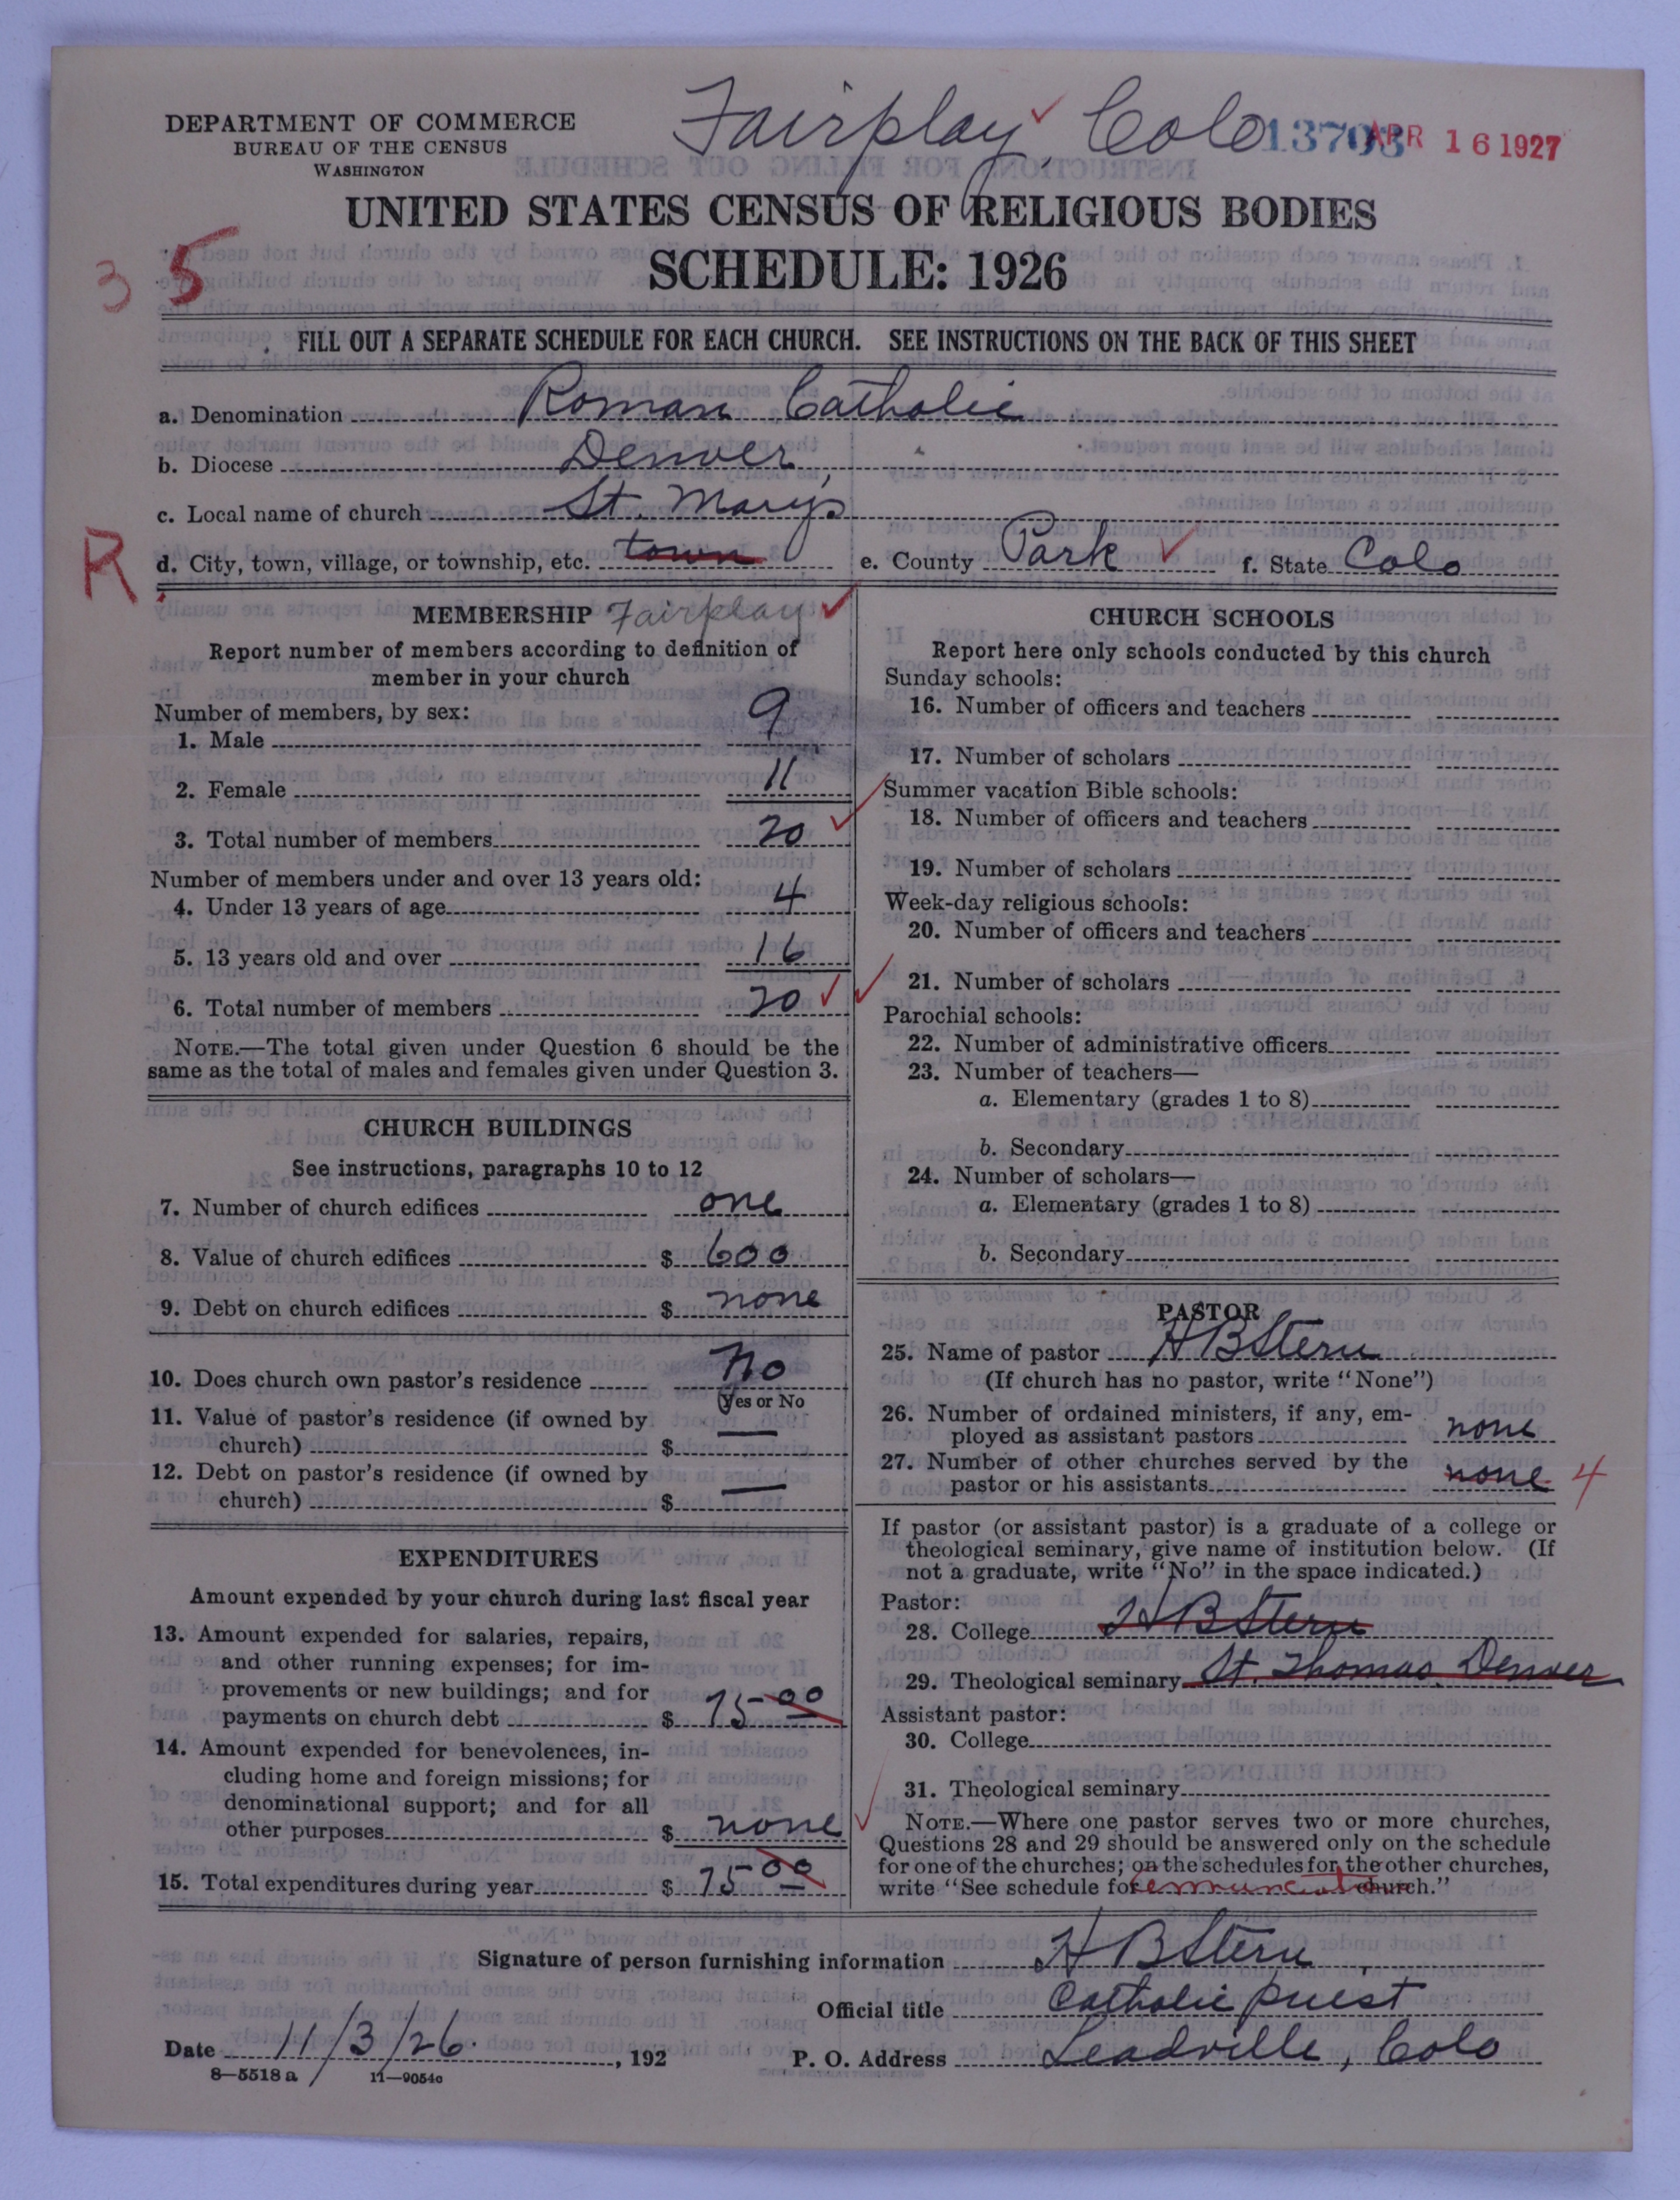 Fairplay, Colo
13703
APR 16 1927
DEPARTMENT OF COMMERCE
BUREAU OF THE CENSUS
WASHINGTON
UNITED STATES CENSUS OF RELIGIOUS BODIES
SCHEDULE: 1926
3 5
FILL OUT A SEPARATE SCHEDULE FOR EACH CHURCH. SEE INSTRUCTIONS ON THE BACK OF THIS SHEET
a. Denomination Roman Catholic
b. Diocese Denver
c. Local name of church St. Mary's
R
d. City, town, village, or township, etc. town e. County Park f. State Colo
MEMBERSHIP Fairplay
Report number of members according to definition of
member in your church
Number of members, by sex:
1. Male 9
2. Female 11
3. Total number of members 20
Number of members under and over 13 years old:
4. Under 13 years of age 4
5. 13 years old and over 16
6. Total number of members 20
NOTE.—The total given under Question 6 should be the
same as the total of males and females given under Question 3.
CHURCH BUILDINGS
See instructions, paragraphs 10 to 12
7. Number of church edifices one
8. Value of church edifices $ 600
9. Debt on church edifices $ none
10. Does church own pastor's residence No
(Yes or No
11. Value of pastor's residence (if owned by
church) $ —
12. Debt on pastor's residence (if owned by
church) $ —
EXPENDITURES
Amount expended by your church during last fiscal year
13. Amount expended for salaries, repairs,
and other running expenses; for im-
provements or new buildings; and for
payments on church debt $ 75-00
14. Amount expended for benevolences, in-
cluding home and foreign missions; for
denominational support; and for all
other purposes $ none
15. Total expenditures during year $ 75-00
CHURCH SCHOOLS
Report here only schools conducted by this church
Sunday schools:
16. Number of officers and teachers
17. Number of scholars
Summer vacation Bible schools:
18. Number of officers and teachers
19. Number of scholars
Week-day religious schools:
20. Number of officers and teachers
21. Number of scholars
Parochial schools:
22. Number of administrative officers
23. Number of teachers—
a. Elementary (grades 1 to 8)
b. Secondary
24. Number of scholars—
a. Elementary (grades 1 to 8)
b. Secondary
PASTOR
25. Name of pastor H B Stern
(If church has no pastor, write "None")
26. Number of ordained ministers, if any, em-
ployed as assistant pastors none
27. Number of other churches served by the
pastor or his assistants none 4
If pastor (or assistant pastor) is a graduate of a college or
theological seminary, give name of institution below. (If
not a graduate, write "No" in the space indicated.)
Pastor:
28. College H B Stern
29. Theological seminary St. Thomas. Denver
Assistant pastor:
30. College
31. Theological seminary
NOTE.—Where one pastor serves two or more churches,
Questions 28 and 29 should be answered only on the schedule
for one of the churches; on the schedules for the other churches,
write "See schedule for church."
Signature of person furnishing information H B Stern
Official title Catholic priest
Date 11/3/26. , 192 P. O. Address Leadville, Colo
8—5518 a 11—9054c